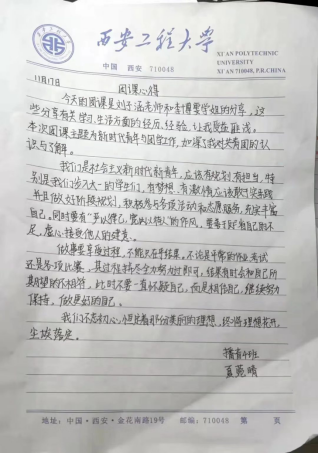 西安工程大学
XI'AN POLYTECHNIC
UNIVERSITY
中国 西安 710048
XI'AN 710048, P.R.CHINA
11月17日
团课心得
今天的团课是刘子涵老师和李博雯学姐的分享，这
些分享有关学习、生活方面的经历、经验，让我受益匪浅。
本次团课主题为新时代青年与团学工作，加深了我对共青团的认
识与了解。
我们是社会主义新时代新青年，应该有规划，有担当，特
别是我们步入大一的学生们，有梦想，有激情，应该敢于去实践
并且做好阶段规划，积极参与各项活动和志愿服务，充实丰富
自己，同时要有“严以律己，宽以待人”的作风，要善于正看自己的不
足，虚心接受他人的建意。
做事要享受过程，不能只在乎结果，不论是平常的作业考试
还是各项比赛，其过程持尽全力努力过即可，结果有时会和自己所
期望的不相符，此时不要一直怀疑自己，而是相信自己，继续努力
保持，做更好的自己。
我们不忘初心，怀
着那份崇高的理想，终将理想花开，
尘埃落定。
播音4班
夏苑晴
地址：中国·西安·金花南路19号 邮编：710048 第 页